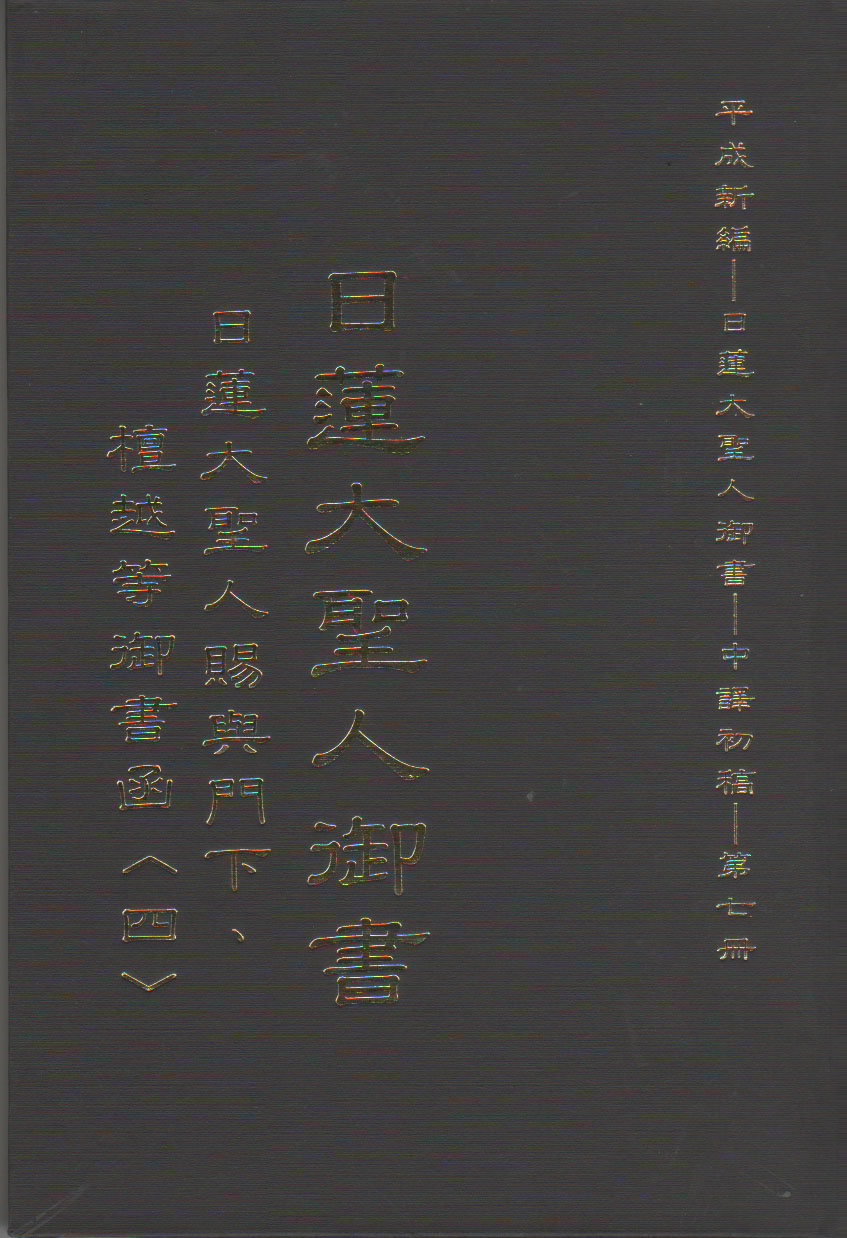 平成新編—日蓮大聖人御書—中譯初稿—第七冊
日蓮大聖人御書
日蓮大聖人賜與門下、
檀越等御書函〈四〉